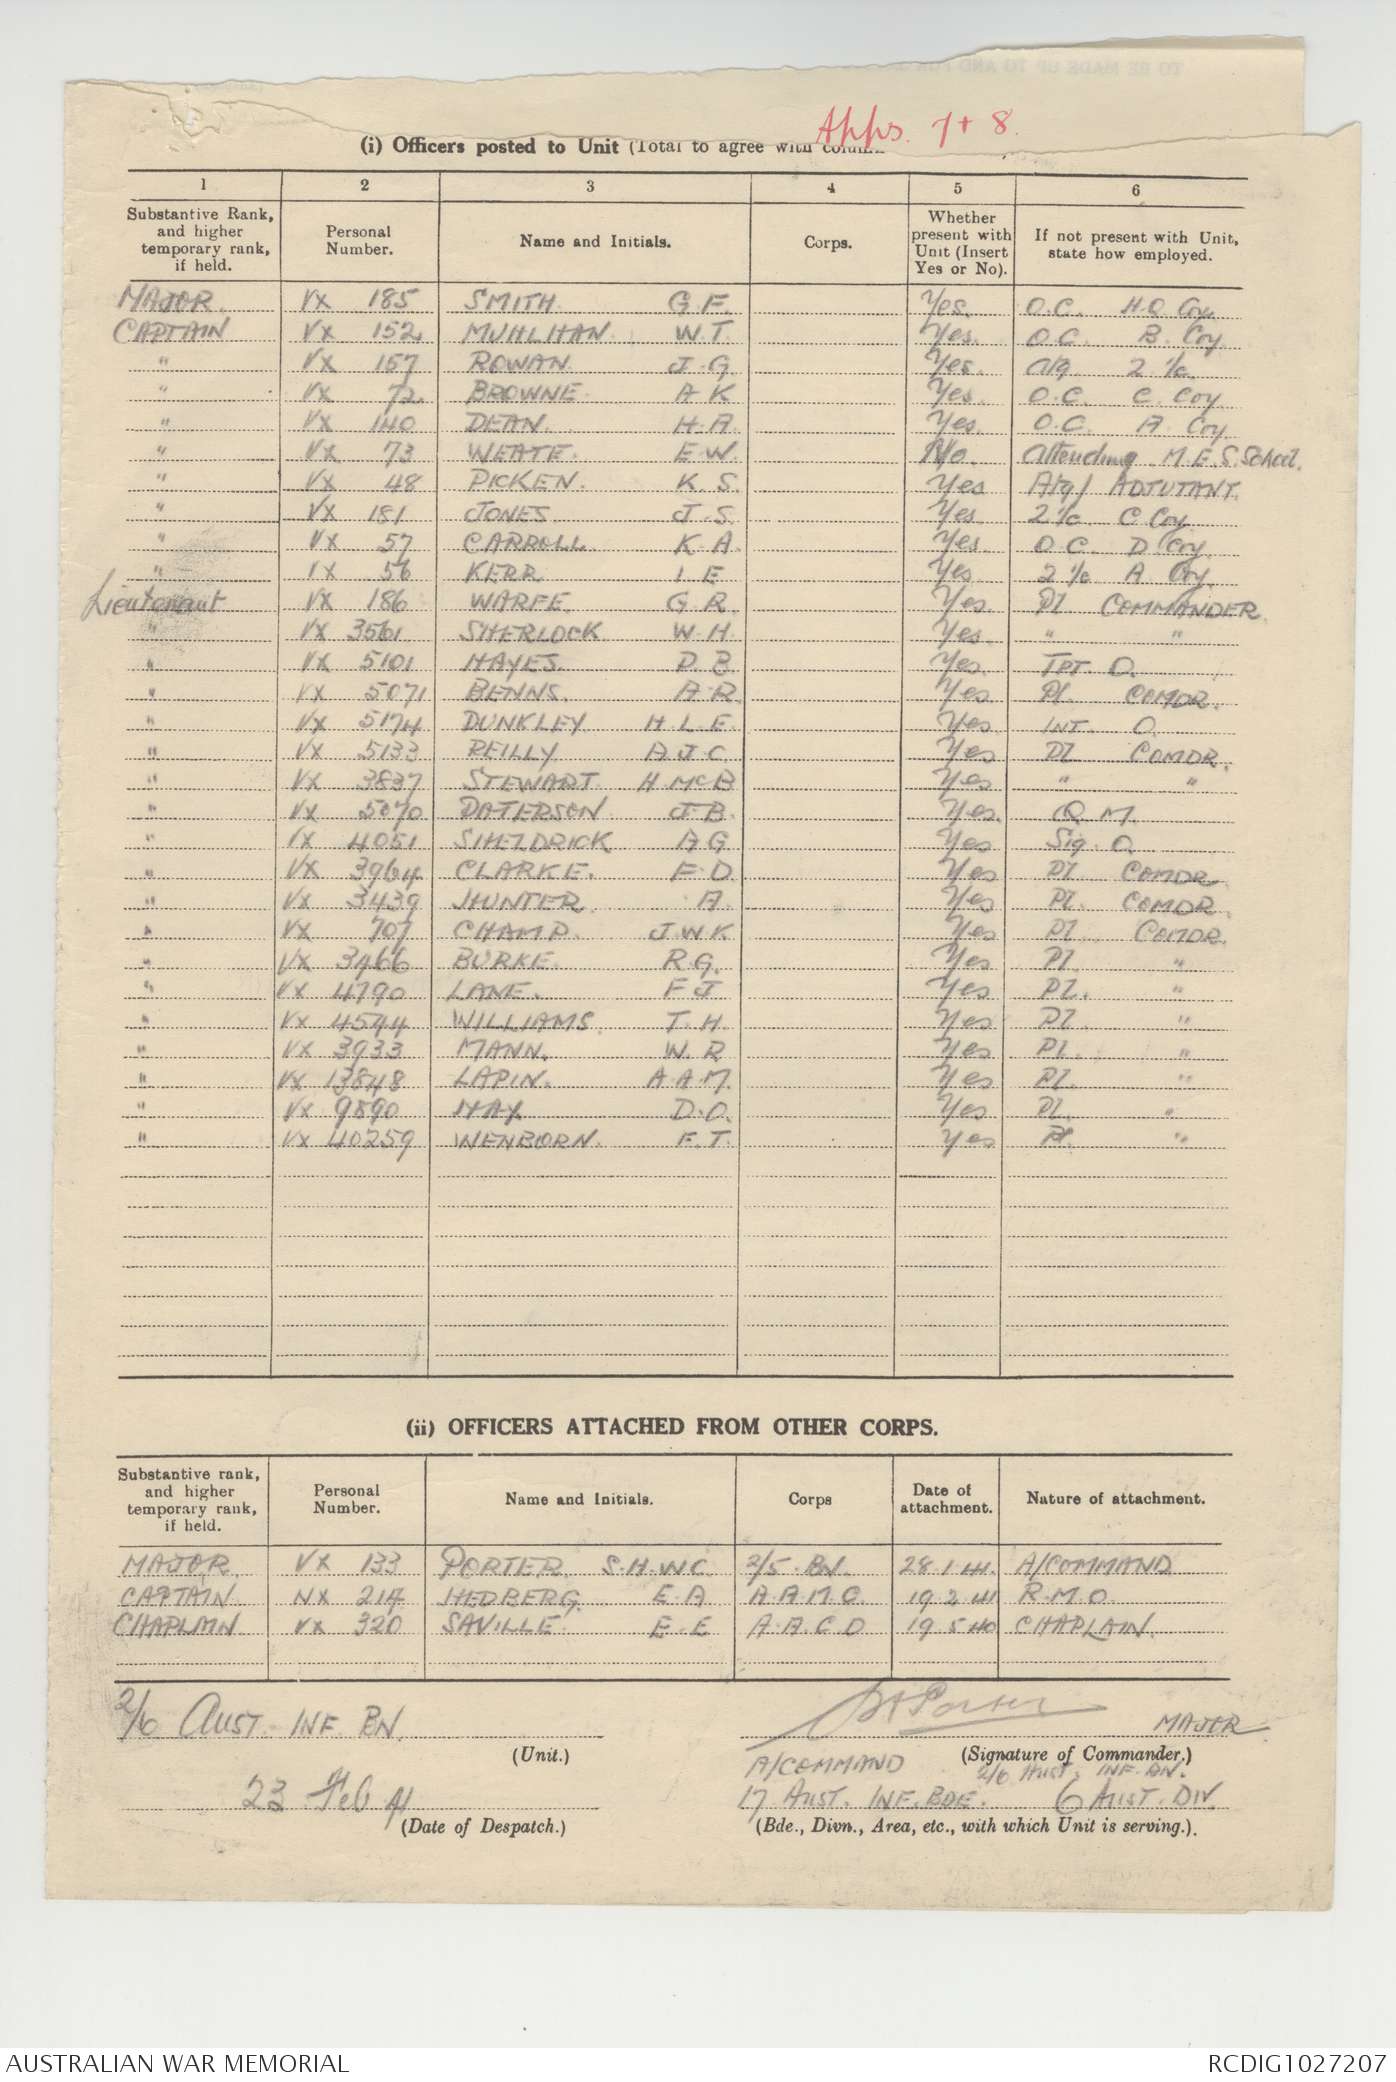 Apps. 7 + 8.
(i) Officers posted to Unit (Total to agree with
1 2 3 4 5 6
Substantive Rank, and higher temporary rank, if held. Personal Number. Name and Initials. Corps. Whether present with Unit (Insert Yes or No). If not present with Unit, state how employed.
MAJOR. VX 185 SMITH G.F. Yes. O.C. H.Q Coy.
CAPTAIN VX 152 MUHLHAN W.T. Yes. O.C. B. Coy.
" VX 157 ROWAN. J.G. Yes. 2 i/c.
" VX 72 BROWNE A K Yes. O.C. C. Coy
" VX 140 DEAN. H.A. Yes. O.C. A. Coy.
" VX 73 WEATE. E.W. No. Attending M.E.S. School.
" VX 48 PICKEN. K.S. Yes A/g/ ADJUTANT.
" VX 181 JONES. J.S. Yes 2 i/c C Coy
" VX 57 CARROLL. K.A. Yes. O.C. D Coy.
" VX 56 KERR I E Yes 2 i/c A Coy.
Lieutenant VX 186 WARFE. G.R. Yes. Pl COMMANDER.
" VX 3561 SHERLOCK W.H. Yes. " "
" VX 5101 HAYES. D.B. Yes. Tpt. O.
" VX 5071 BENNS. A.R. Yes Pl. COMDR.
" VX 5174 DUNKLEY H.L.E. Yes. INT. O.
" VX 5133 REILLY A.J.C. Yes Pl COMDR.
" VX 3837 STEWART. H McB Yes " "
" VX 5070 PATERSON. J.B. Yes. Q.M.
" VX 4051 SHELDRICK A G Yes. Sig. O.
" VX 3964 CLARKE. F.D. Yes Pl COMDR.
" VX 3439 HUNTER. A. Yes Pl. COMDR.
" VX 707 CHAMP. J.W.K. Yes Pl. COMDR.
" VX 3466 BURKE. R.G. Yes Pl. "
" VX 4790 LANE. F J Yes Pl. "
" VX 4544 WILLIAMS. T.H. Yes Pl. "
" VX 3933 MANN. W.R Yes Pl. "
" VX 13848 LAPIN. A.A.M. Yes Pl. "
" VX 9890 HAY D.O. Yes Pl. "
" VX 40259 WENBORN. F.T. Yes Pl. "
(ii) OFFICERS ATTACHED FROM OTHER CORPS.
Substantive rank, and higher temporary rank, if held. Personal Number. Name and Initials. Corps Date of attachment. Nature of attachment.
MAJOR. VX 133 PORTER S.H.W.C. 2/5. BN. 28.1.41. A/COMMAND
CAPTAIN. NX 214 HEDBERG. E.A A.A.M.C. 19.2.41 R.M.O.
CHAPLAIN. VX 320 SAVILLE. E.E A.A.C.D 19.5.40 CHAPLAIN.
2/6 AUST. INF. BN. Porter MAJOR
(Unit.) A/COMMAND (Signature of Commander.)
2/6 AUST. INF. BN.
23 Feb 41 17 AUST. INF. BDE. 6 AUST. DIV.
(Date of Despatch.) (Bde., Divn., Area, etc., with which Unit is serving.).
AUSTRALIAN WAR MEMORIAL RCDIG1027207